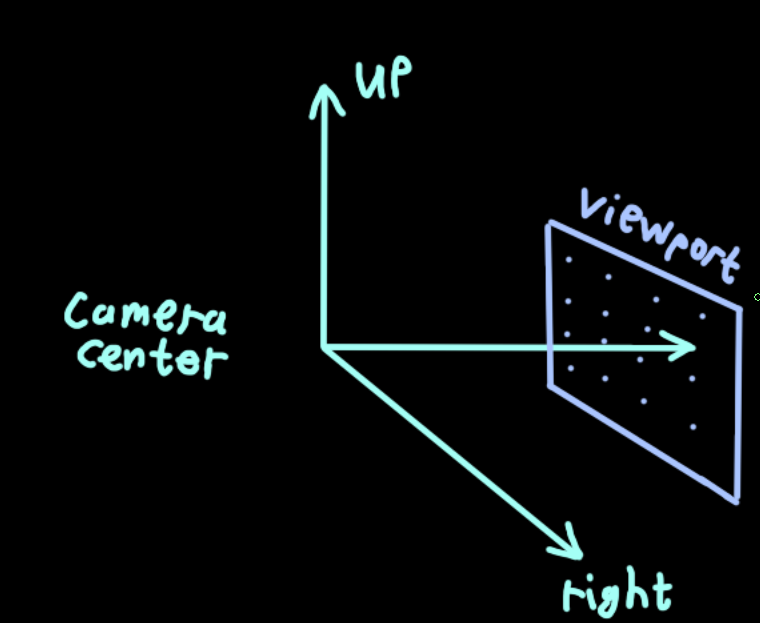 UP
viewport
Camera
center
right